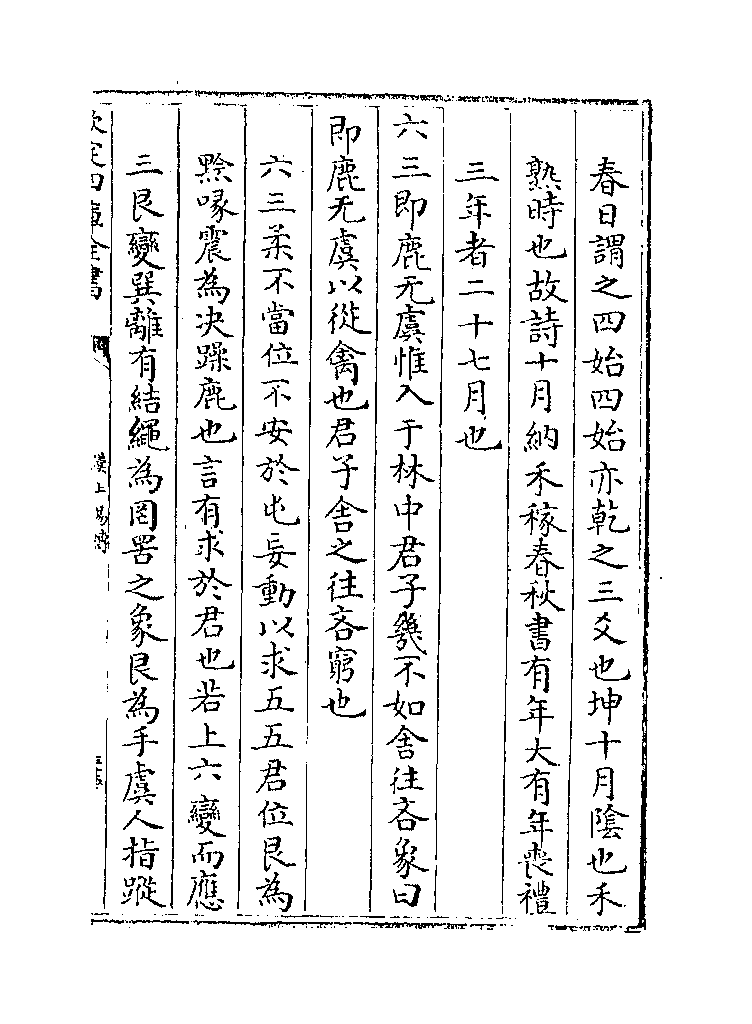 春日謂之四始四始亦乾之三爻也坤十月陰也禾
熟時也故詩十月納禾稼春秋書有年大有年喪禮
三年者二十七月也
六三即鹿无虞惟入于林中君子幾不如舍往吝象曰
即鹿无虞以從禽也君子舍之往吝窮也
六三柔不當位不安於屯妄動以求五五君位艮為
黔喙震為决躁鹿也言有求於君也若上六變而應
三艮變巽離有結繩為罔罟之象艮為手虞人指蹤
欽定四庫全書
漢上易傳